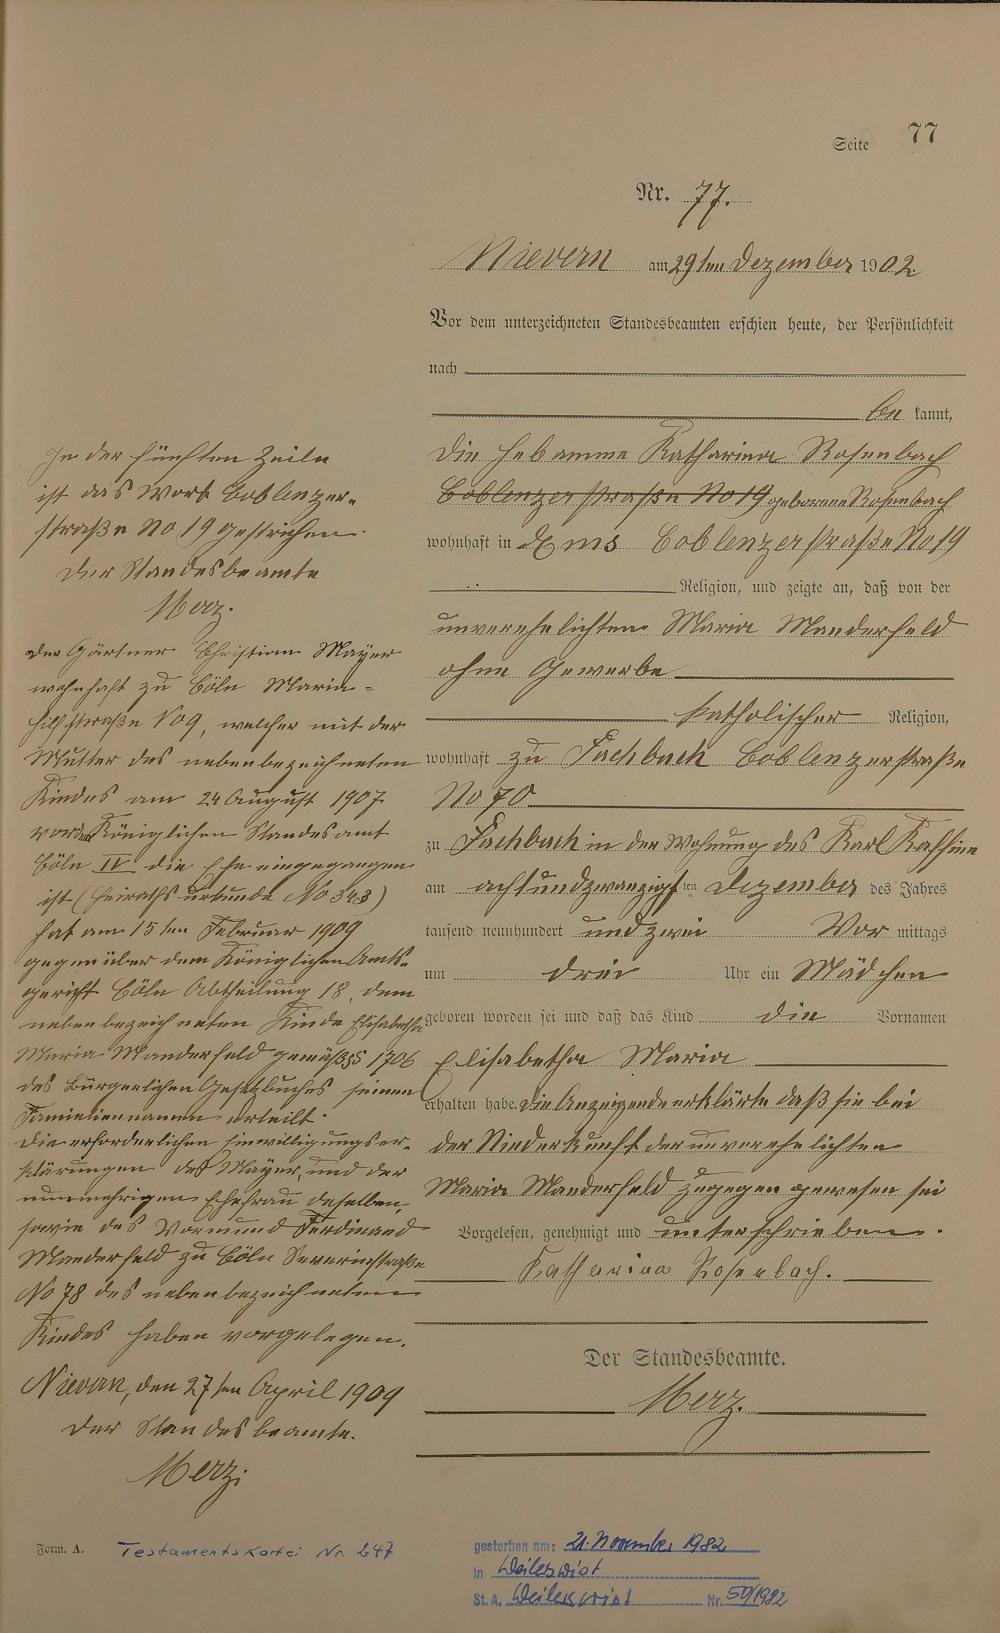 Seite 77
Nr. 77.
Nievern am 29ten Dezember 1902.
Vor dem unterzeichneten Standesbeamten erschien heute, der Persönlichkeit
nach
be kannt,
die Hebamme Katharina Rosenbach
Coblenzerstraße No 19 geborene Rosenbach
wohnhaft in Ems Coblenzerstraße No 19
Religion, und zeigte an, daß von der
unverehelichten Maria Manderfeld
ohne Gewerbe
katholischer Religion,
wohnhaft zu Fachbach Coblenzerstraße
No 70
zu Fachbach in der Wohnung des Karl
am achtundzwanzigsten ten Dezember des Jahres
tausend neunhundert und zwei Vor mittags
um drei Uhr ein Mädchen
geboren worden sei und daß das Kind die Vornamen
Elisabetha Maria
erhalten habe. Die Anzeigende erklärte daß sie bei
der Niederkunft der unverehelichten
Maria Manderfeld zugegen gewesen sei
Vorgelesen, genehmigt und unterschrieben.
Katharina Rosenbach.
Der Standesbeamte.
Merz.
In der fünften Zeile
ist das Wort Coblenzer-
straße No 19 gestrichen.
Der Standesbeamte
Merz.
Der Gärtner Christian Mayer
wohnhaft zu Cöln Maria-
hilfstraße No 9, welcher mit der
Mutter des nebenbezeichneten
Kindes am 24 August 1907
vor dem Königlichen Standesamt
Cöln IV die Ehe eingegangen
ist (Heirathsurkunde No 343)
hat am 15ten Februar 1909
gegenüber dem Königlichen Amts-
gericht Cöln Abtheilung 18, dem
nebenbezeichneten Kinde Elisabetha
Maria Manderfeld gemäß § 1706
des Bürgerlichen Gesetzbuches seinen
Familiennamen erteilt.
Die erforderlichen Einwilligungser-
klärungen des Mayer, und der
nunmehrigen Ehefrau deselben,
sowie des Vormund Ferdinand
Manderfeld zu Cöln Severinstraße
No 78 des nebenbezeichneten
Kindes haben vorgelegen.
Nievern, den 27ten April 1909
Der Standesbeamte.
Merz.
Form. A. Testamentskartei Nr. 247
gestorben am: 21. November 1982
in Weilerswist
St. A. Weilerswist Nr. 50/1982